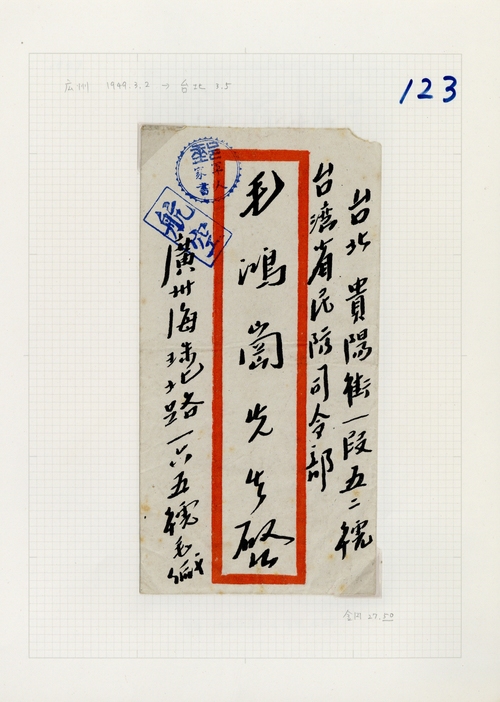 広州 1949.3.2 → 台北 3.5
123
台北 貴陽街一段五二號
台灣省民防司令部
毛鴻崗先生啟
廣州海珠北路一六五號毛緘
軍人
家書
航空
金円 27.50